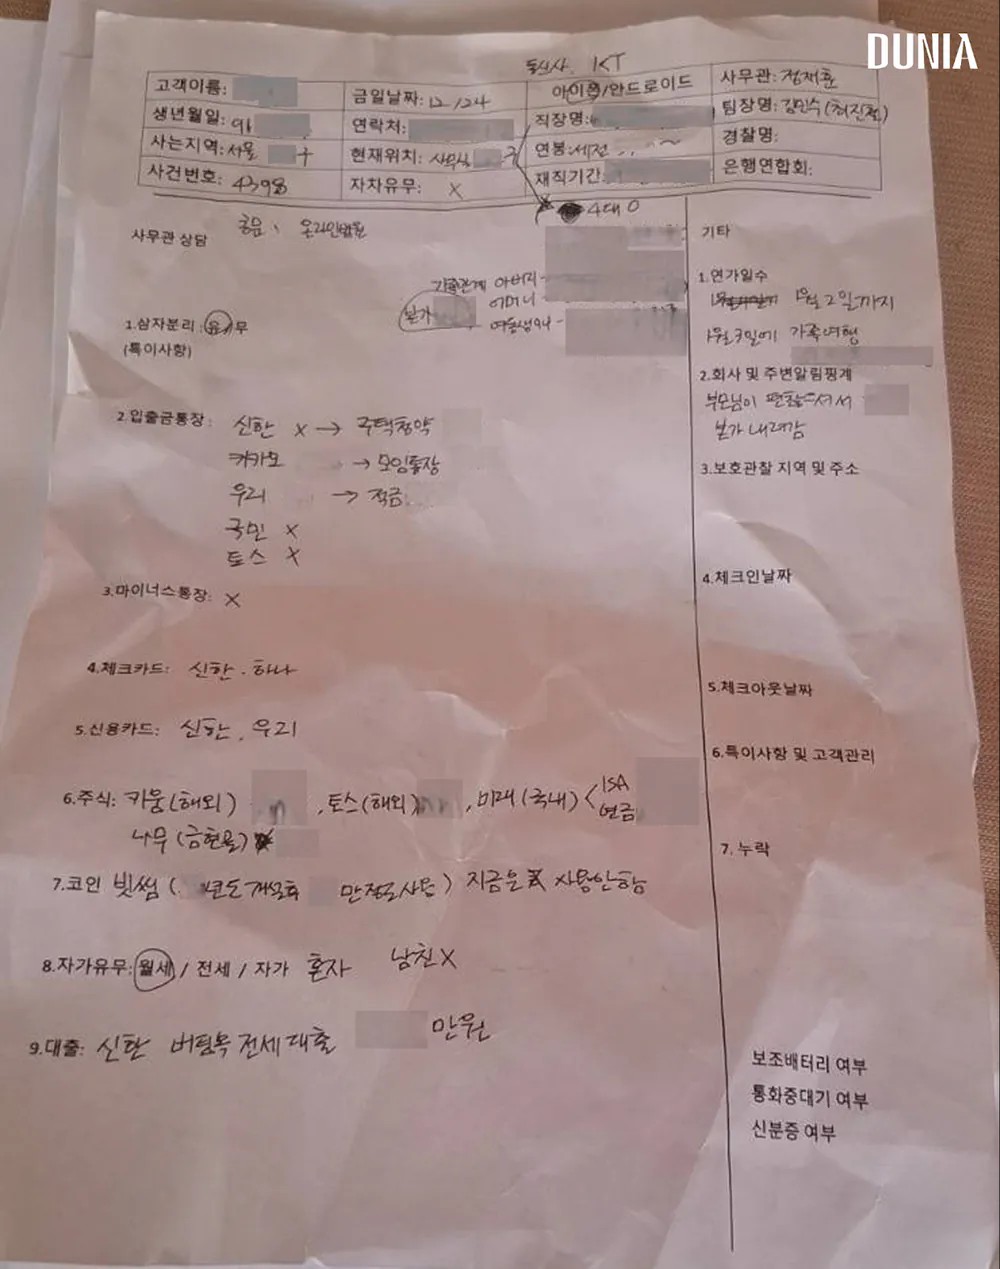 DUNIA
통신사 KT
고객이름: 금일날짜: 12/24 아이폰/안드로이드 사무관: 정재훈
생년월일: 91 연락처: 직장명: 팀장명: 김민수(최진철)
사는지역: 서울 구 현재위치: 사무실 구 연봉: 세전 ~ 경찰명:
사건번호: 4398 자차유무: X 재직기간: 은행연합회:
4대 O
사무관 상담
온라인법원
가족관계 아버지-
어머니-
본가
여동생
1.삼자분리: 유/무
(특이사항)
2.입출금통장: 신한 X → 주택청약
카카오 → 모임통장
우리 → 적금
국민 X
토스 X
3.마이너스통장: X
4.체크카드: 신한. 하나
5.신용카드: 신한, 우리
6.주식: 키움(해외) , 토스(해외) , 미래(국내) < ISA
연금
나무(금현물)
7.코인 빗썸( 년도 개설후 만정도사용) 지금은 사용안함
8.자가유무: 월세 / 전세 / 자가 혼자 남친X
9.대출: 신한 버팀목 전세대출 만원
기타
1.연가일수
1월2일까지
1월3일에 가족여행
2.회사 및 주변알림핑계
부모님이 편찮으셔서
본가 내려감
3.보호관찰 지역 및 주소
4.체크인날짜
5.체크아웃날짜
6.특이사항 및 고객관리
7.누락
보조배터리 여부
통화중대기 여부
신분증 여부